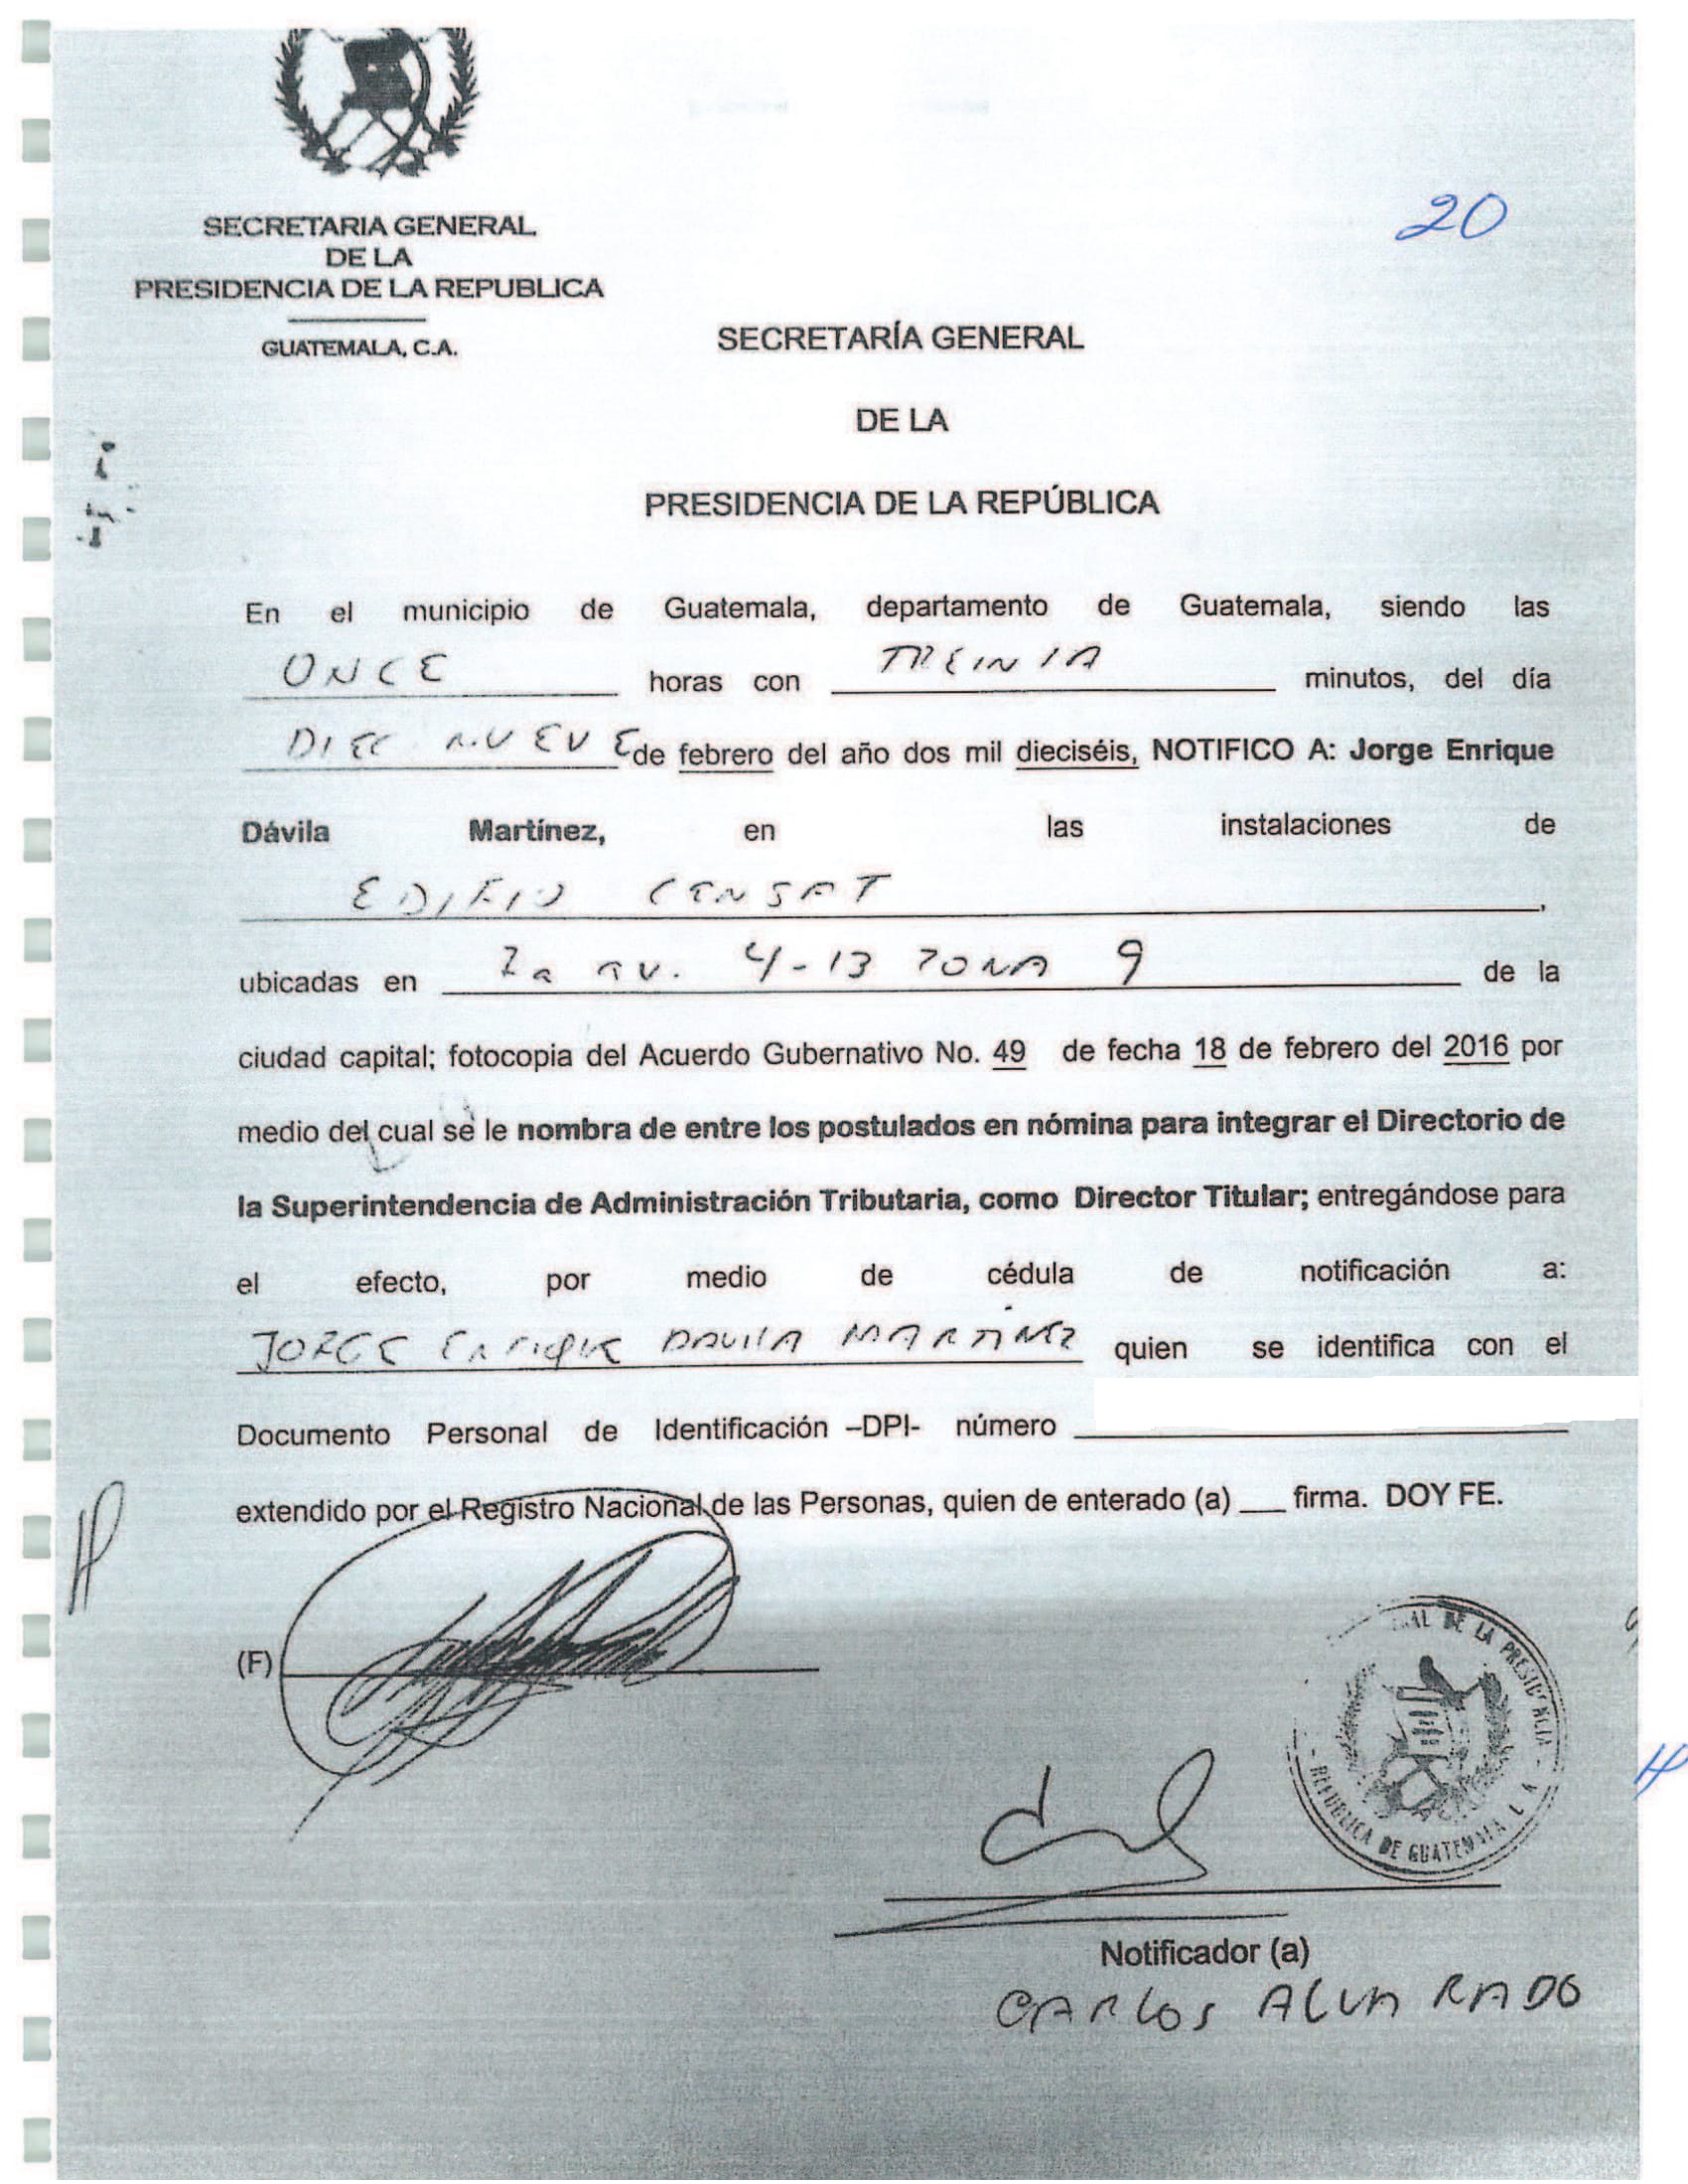 20
SECRETARIA GENERAL
DE LA
PRESIDENCIA DE LA REPUBLICA
GUATEMALA, C.A.
SECRETARÍA GENERAL
DE LA
PRESIDENCIA DE LA REPÚBLICA
En el municipio de Guatemala, departamento de Guatemala, siendo las
ONCE horas con TREINTA minutos, del día
DIEC NUEVE de febrero del año dos mil dieciséis, NOTIFICO A: Jorge Enrique
Dávila Martínez, en las instalaciones de
EDIFIO CENSAT,
ubicadas en 7a av. 4-13 ZONA 9 de la
ciudad capital; fotocopia del Acuerdo Gubernativo No. 49 de fecha 18 de febrero del 2016 por
medio del cual se le nombra de entre los postulados en nómina para integrar el Directorio de
la Superintendencia de Administración Tributaria, como Director Titular; entregándose para
el efecto, por medio de cédula de notificación a:
JORGE Enrique DAVILA MARTINEZ quien se identifica con el
Documento Personal de Identificación –DPI- número
extendido por el Registro Nacional de las Personas, quien de enterado (a) ___ firma. DOY FE.
(F)
DE LA PRESIDENCIA
REPUBLICA DE GUATEMALA
Notificador (a)
CARLOS ALVARADO